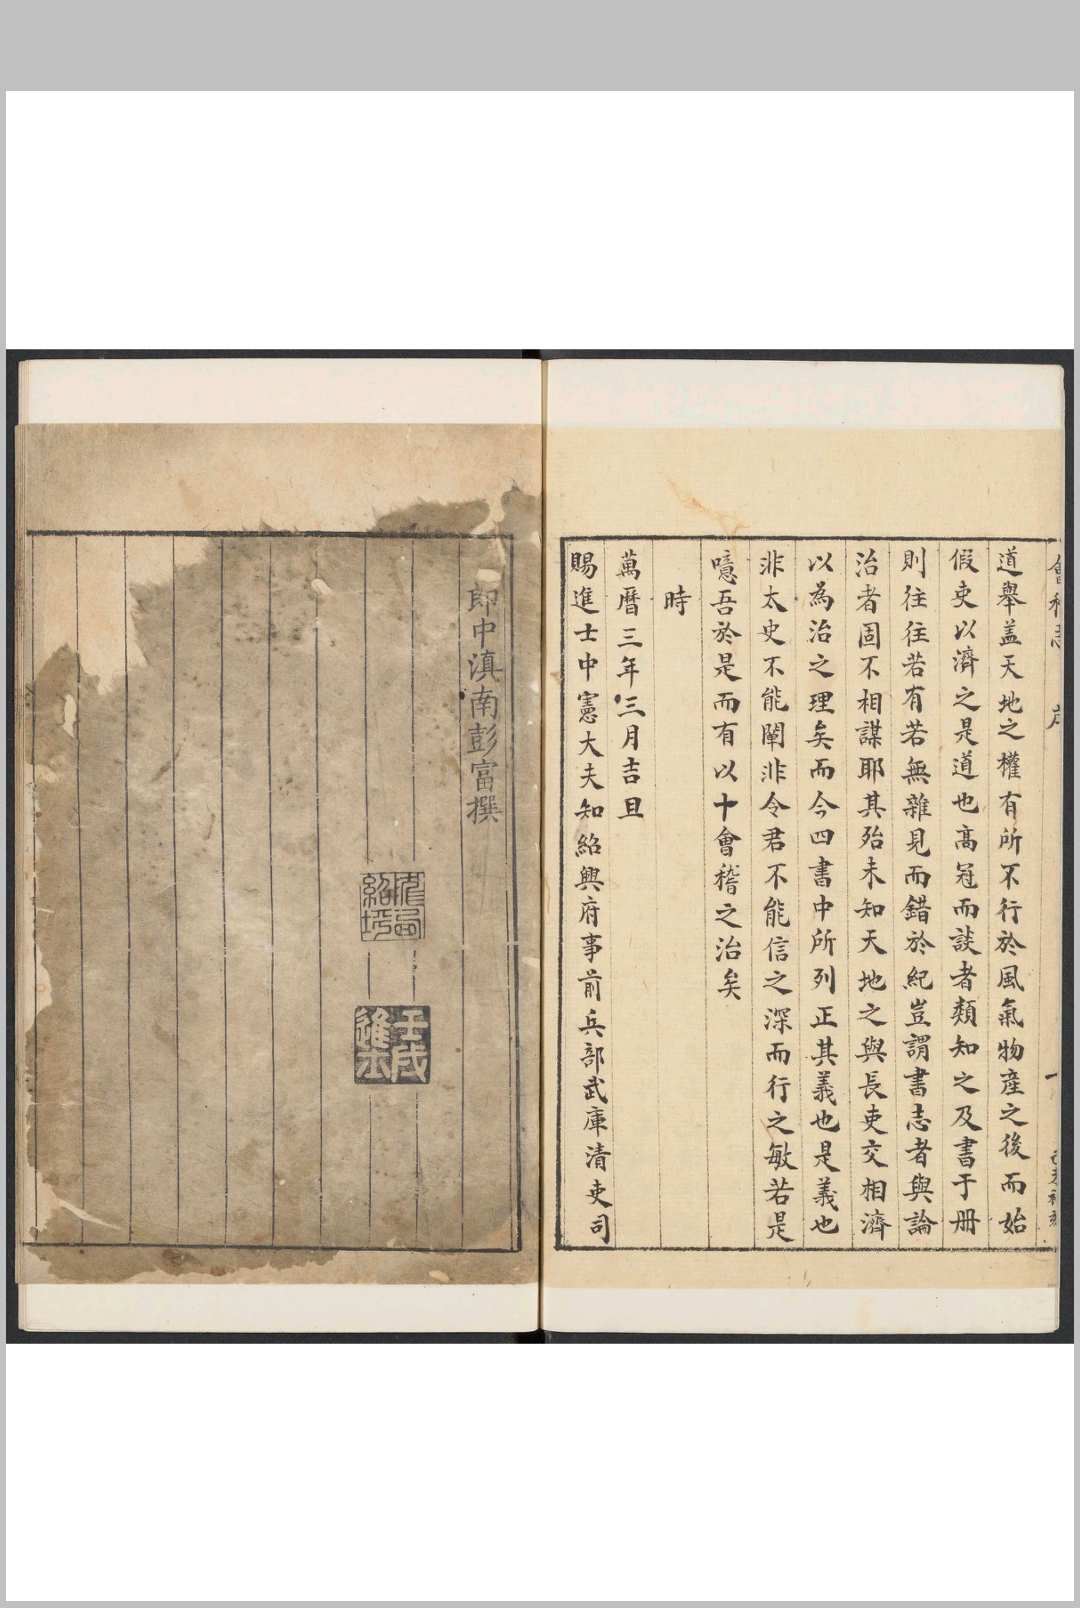 會稽志 序 一
道舉盖天地之權有所不行於風氣物產之後而始
假吏以濟之是道也高冠而談者類知之及書于册
則往往若有若無雜見而錯於紀豈謂書志者與論
治者固不相謀耶其殆未知天地之與長吏交相濟
以為治之理矣而今四書中所列正其義也是義也
非太史不能闡非令君不能信之深而行之敏若是
噫吾於是而有以十會稽之治矣
時
萬曆三年三月吉旦
賜進士中憲大夫知紹興府事前兵部武庫清吏司
郎中滇南彭富撰
壬戌進士